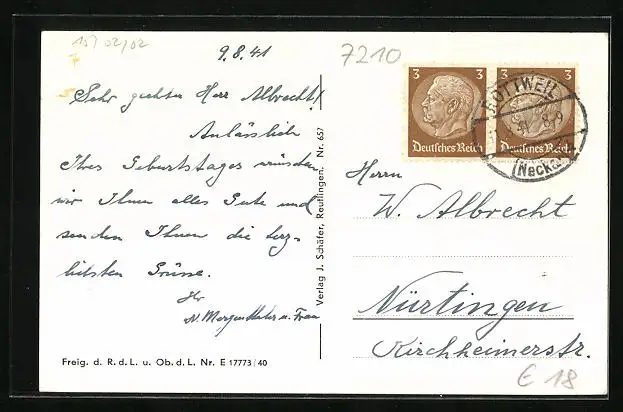 15/02/02
7
9.8.41
Sehr geehrter Herr Albrecht!
Anlässlich
Ihres Geburtstages wünschen
wir Ihnen alles Gute und
senden Ihnen die herz-
lichsten Grüsse.
Ihr
N. Morgenthaler u. Frau
Freig. d. R. d. L. u. Ob. d. L. Nr. E 17773/40
Verlag J. Schäfer, Reutlingen. Nr. 657
7210
3 3
Deutsches Reich
3 3
Deutsches Reich
ROTTWEIL
(Neckar)
Herrn
W. Albrecht
Nürtingen
Kirchheimerstr.
E 18